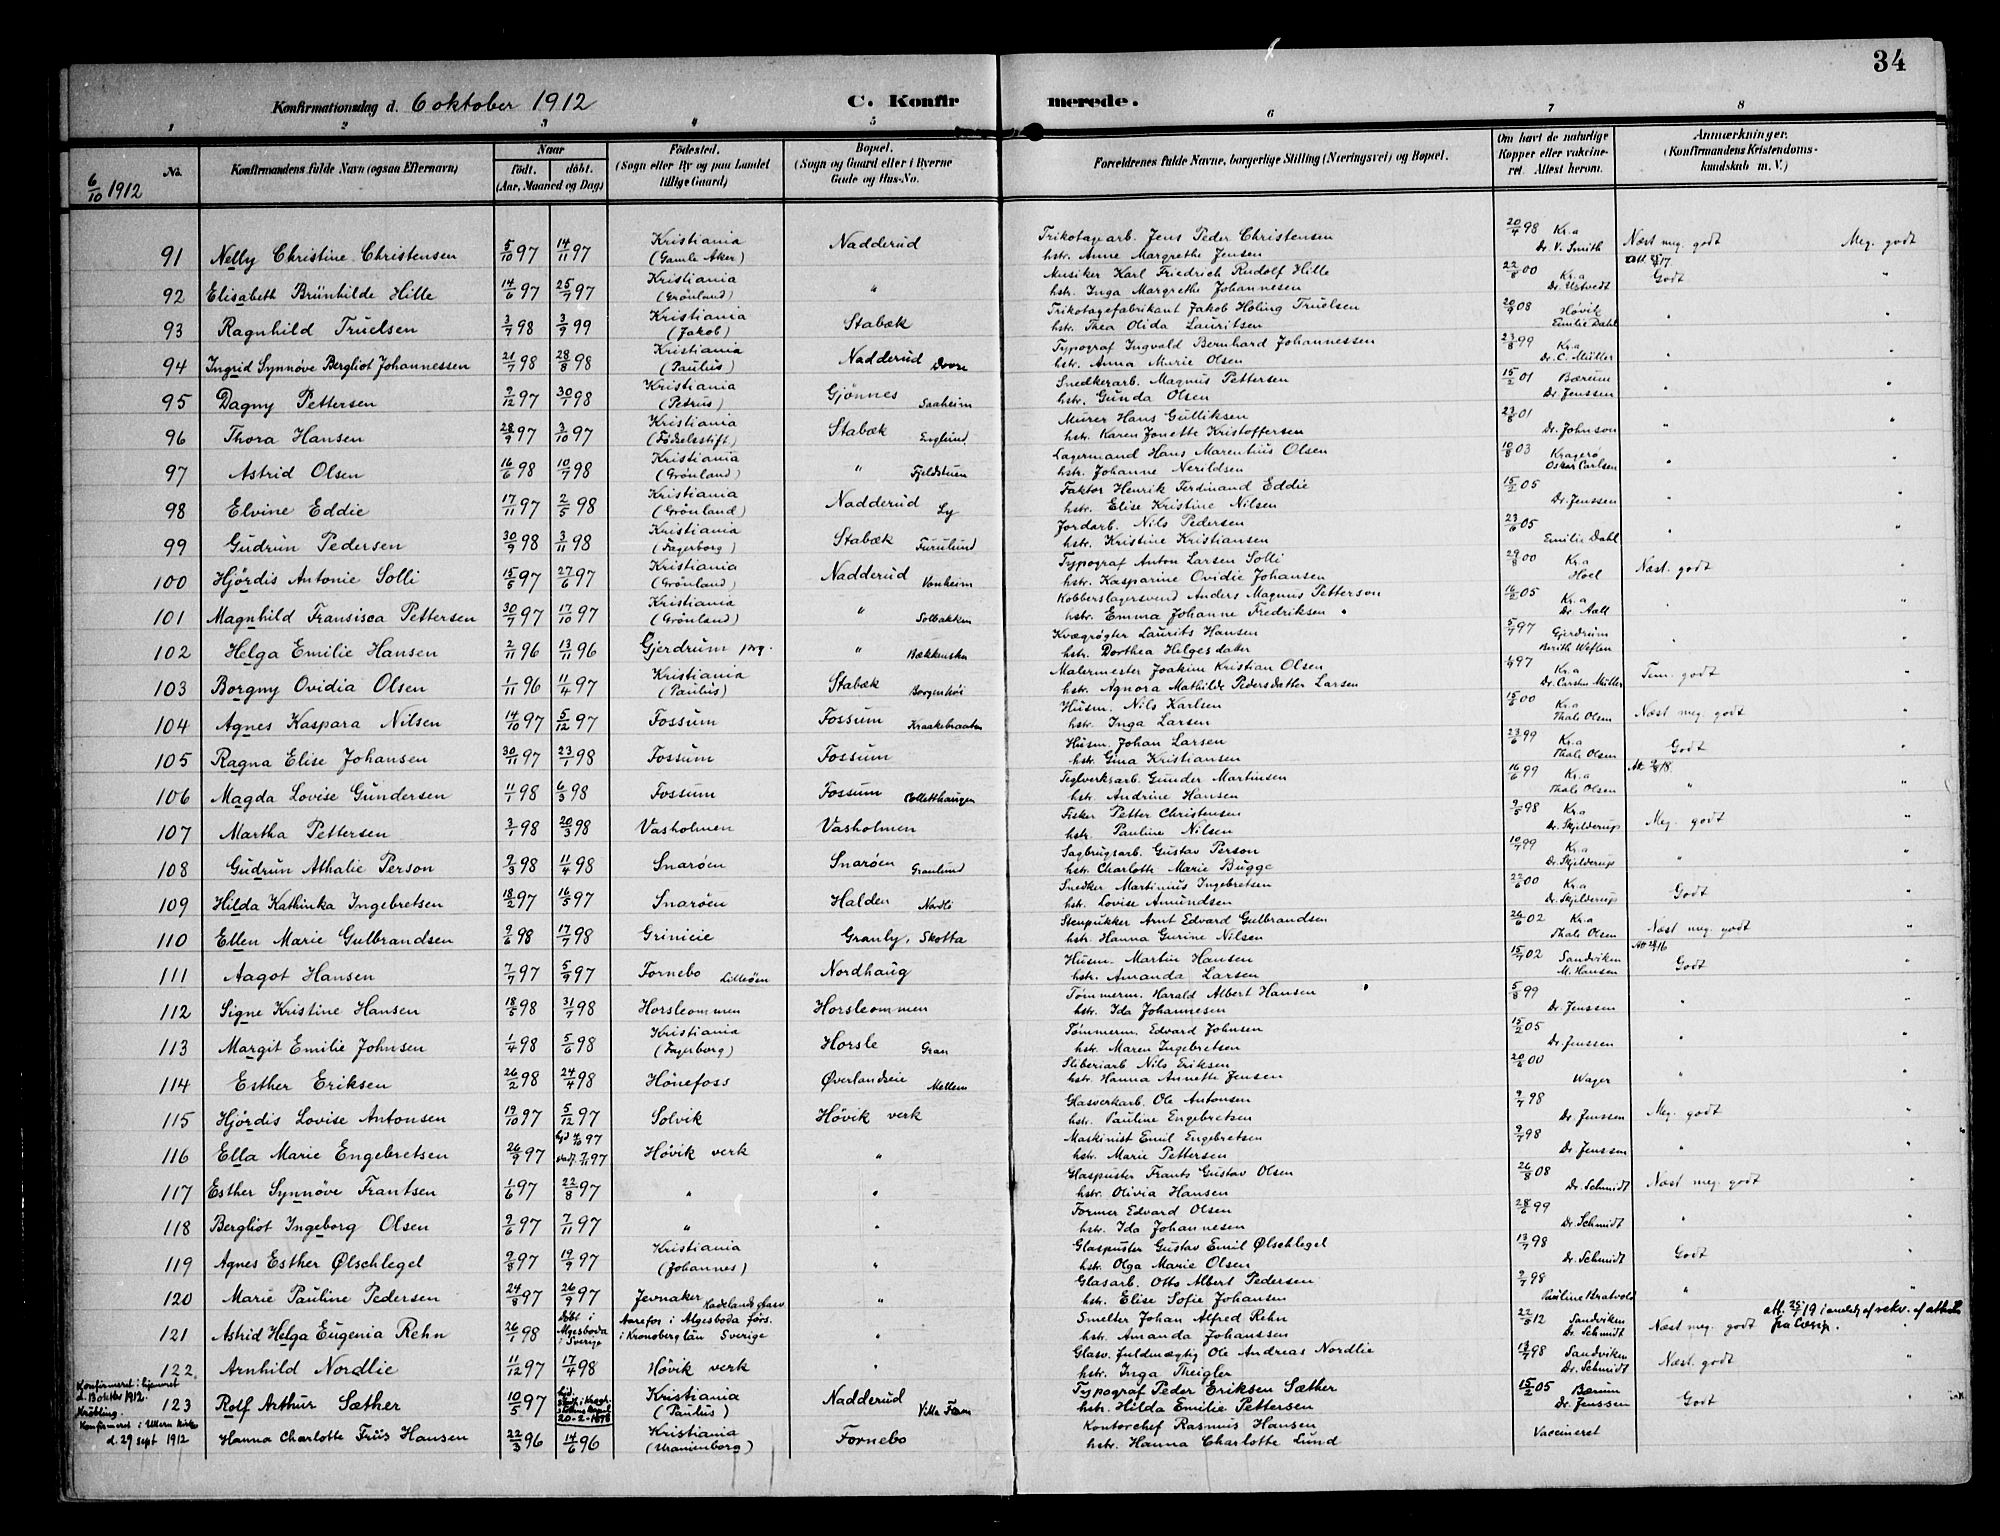 34
Konfirmationsdag d. 6 oktober 1912 C. Konfirmerede.
1 2 3 4 5 6 7 8
6/10 1912 No. Konfirmandens fulde Navn (ogsaa Efternavn) Naar født. døbt. (Aar, Maaned og Dag) Fødested. (Sogn eller By og paa Landet tillige Gaard) Bopæl. (Sogn og Gaard eller i Byerne Gade og Hus-No. Forældrenes fulde Navne, borgerlige Stilling (Næringsvei) og Bopæl. Om havt de naturlige Kopper eller vakcineret. Attest herom. Anmærkninger. (Konfirmandens Kristendomskundskab m. V.)
91 Nelly Christine Christensen 5/10 97 14/11 97 Kristiania (Gamle Aker) Nadderud Trikotagearb. Jens Peder Christensen hstr. Anne Margrethe Jensen 20/4 98 Kr.a Dr. V. Smith Næst meg. godt Meg. godt
92 Elisabeth Brünhilde Hille 14/6 97 25/7 97 Kristiania (Grönland) " Musiker Karl Friedrich Rudolf Hille hstr. Inga Margrethe Johannesen 22/8 00 Kr.a Dr. Ustvedt Godt "
93 Ragnhild Truelsen 3/7 98 3/9 99 Kristiania (Jakob) Stabæk Trikotagefabrikant Jakob Høling Truelsen hstr. Thea Olida Lauritsen 20/9 08 Høvik Emilie Dahl " "
94 Ingrid Synnöve Bergliot Johannessen 21/7 98 28/8 98 Kristiania (Paulus) Nadderud Dovre Typograf Ingvald Bernhard Johannessen hstr. Anna Marie Olsen 23/8 99 Kr.a Dr. C. Müller " "
95 Dagny Pettersen 2/12 97 30/1 98 Kristiania (Petrus) Gjönnes Saaheim Snedkerarb. Magnus Pettersen hstr. Gunda Olsen 15/2 01 Bærum Dr. Jenssen " "
96 Thora Hansen 28/9 97 3/10 97 Kristiania (Födselsstift) Stabæk Englund Murer Hans Gulliksen hstr. Karen Jonette Kristoffersen 23/8 01 Dr. Johnson " "
97 Astrid Olsen 16/6 98 10/7 98 Kristiania (Grönland) " Fjeldstuen Lagermand Hans Marentius Olsen hstr. Johanne Nerildsen 10/8 03 Kragerø Oskar Carlsen "
98 Elvine Eddie 17/11 97 2/5 98 Kristiania (Grönland) Nadderud Ly Faktor Henrik Ferdinand Eddie hstr. Elise Kristine Nilsen 15/2 05 Dr. Jenssen " "
99 Gudrun Pedersen 30/9 98 3/11 98 Kristiania (Fagerborg) Stabæk Furulund Jordarb. Nils Pedersen hstr. Kristine Kristiansen 23/6 05 Emilie Dahl " "
100 Hjördis Antonie Solli 15/5 97 27/6 97 Kristiania (Grönland) Nadderud Vonheim Typograf Anton Larsen Solli hstr. Kasparine Ovidie Johansen 29/8 00 Kr.a Hoel Næst. godt "
101 Magnhild Fransisca Pettersen 30/7 97 17/10 97 Kristiania (Grönland) " Solbakken Kobberslagersvend Anders Magnus Petterson hstr. Emma Johanne Fredriksen 16/2 05 Kr.a Dr. Aall " "
102 Helga Emilie Hansen 2/11 96 13/11 96 Gjerdrum prg. " Kvægrögter Laurits Hansen hstr. Dorthea Helgesdater 5/7 97 Gjerdrum Berith Weflen " "
103 Borgny Ovidia Olsen 1/11 96 11/4 97 Kristiania (Paulus) Stabæk Borgenhöi Malermester Joakim Kristian Olsen hstr. Agnora Mathilde Pedersdatter Larsen 97 Kr.a Dr. Carsten Müller Tem. godt "
104 Agnes Kaspara Nilsen 14/10 97 5/12 97 Fossum Fossum Kraakebraaten Husm. Nils Karlsen hstr. Inga Larsen 15/6 00 Kr.a Thale Olsen Næst meg. godt "
105 Ragna Elise Johansen 30/11 97 23/1 98 Fossum Fossum Husm. Johan Larsen hstr. Gina Kristiansen 23/6 99 Kr.a Thale Olsen Godt "
106 Magda Lovise Gundersen 11/1 98 6/3 98 Fossum Fossum Colletthaugen Teglverksarb. Gunder Martinsen hstr. Andrine Hansen 16/6 99 Kr.a Thale Olsen " "
107 Martha Pettersen 3/1 98 20/3 98 Vasholmen Vasholmen Fisker Petter Christensen hstr. Pauline Nilsen 9/5 98 Kr.a Dr. Skjelderup Meg. godt "
108 Gudrun Athalie Person 2/3 98 11/4 98 Snaröen Snaröen Granlund Sagbrugsarb. Gustav Person hstr. Charlotte Marie Bugge 10/7 99 Kr.a Dr. Skjelderup " "
109 Hilda Kathinka Ingebretsen 18/2 97 16/5 97 Snaröen Halden Nordli Snedker Martinius Ingebretsen hstr. Lovise Amundsen 22/6 00 Kr.a Dr. Skjelderup Godt "
110 Ellen Marie Gulbrandsen 9/6 98 17/7 98 Grinieie Granly, Skotta Stenpukker Arnt Edvard Gulbrandsen hstr. Hanna Gurine Nilsen 26/6 02 Kr.a Thale Olsen Næst meg. godt "
111 Aagot Hansen 7/7 97 5/9 97 Fornebo Lilleöen Nordhaug Husm. Martin Hansen hstr. Amanda Larsen 15/7 02 Sandviken M. Hansen Godt "
112 Signe Kristine Hansen 18/5 98 31/7 98 Horsleommen Horsleommen Tømmerm. Harald Albert Hansen hstr. Ida Johannesen 5/8 99 Dr. Jenssen " "
113 Margit Emilie Johnsen 1/4 98 5/6 98 Kristiania (Fagerborg) Horsle Gran Tømmerm. Edvard Johnsen hstr. Maren Ingebretsen 15/2 05 Dr. Jenssen " "
114 Esther Eriksen 26/2 98 24/4 98 Hönefoss Øverlandseie Mellem Sliberiarb Nils Eriksen hstr. Hanna Annette Jensen 20/6 00 Wager " "
115 Hjördis Lovise Antonsen 19/10 97 5/12 97 Solvik Høvik verk Glasverkarb. Ole Antonsen hstr. Pauline Engebretsen 9/7 98 Dr. Jenssen Meg. godt "
116 Ella Marie Engebretsen 26/9 97 97 97 Høvik verk " Maskinist Emil Engebretsen hstr. Marie Pettersen 9/7 98 Dr. Jenssen " "
117 Esther Synnöve Frantsen 1/6 97 22/8 97 " " Glaspuster Frants Gustav Olsen hstr. Olivia Hansen 26/8 08 Dr. Schmidt Næst meg. godt "
118 Bergliot Ingeborg Olsen 9/6 97 7/11 97 " " Former Edvard Olsen hstr. Ida Johannesen 28/6 99 Dr. Schmidt " "
119 Agnes Esther Ølschlegel 9/8 97 19/9 97 Kristiania (Johannes) " Glaspuster Gustav Emil Ølschlegel hstr. Olga Marie Olsen 13/7 98 Dr. Schmidt Godt "
120 Marie Pauline Pedersen 24/8 97 26/9 97 Jevnaker Hadelands glasv. " Glasarb. Otto Albert Pedersen hstr. Elise Sofie Johansen 9/7 98 Pauline Bratvold " "
121 Astrid Helga Eugenia Rehn 26/1 98 Döbt i Algesboda i Sverige Aarefos i Algesboda förs. i Kronoberg län Sverige " Smelter Johan Alfred Rehn hstr. Amanda Johanssen 22/9 12 Sandviken Dr. Schmidt Næst meg. godt
122. Arnhild Nordlie 11/12 97 17/4 98 Høvik verk " Glasv. fuldmægtig Ole Andreas Nordlie hstr. Inga Theigler 13/7 98 Sandviken Dr. Schmidt Næst. godt "
Konfirmeret i hjemmet d. 13 oktbr 1912. 123 Rolf Arthur Sæther 10/5 97 20-2-1898 Kristiania (Paulus) Nadderud Typograf Peder Eriksen Sæther hstr. Hilda Emilie Pettersen 15/2 05 Bærum Dr. Jenssen Godt
Konfirmeret i Ullern kirke d. 29 sept 1912 Hanna Charlotte Friis Hansen 22/3 96 14/6 96 Kristiania (Uranienborg) Fornebo Kontorchef Rasmus Hansen hstr. Hanna Charlotte Lund Vaccineret